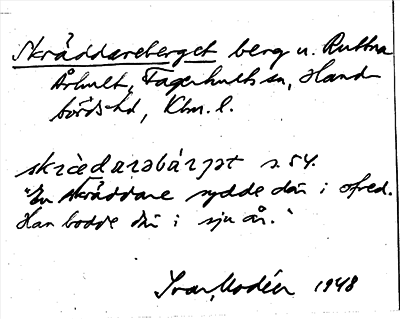 Skräddareberget berg u. Ruttna
Århult, Fagerhults sn, Hand-
börds hd, Klm. l.
skrèdarabárjət s. 54.
"En skräddare sydde där i ofred.
Han bodde där i sju år."
Ivar Modéer 1948